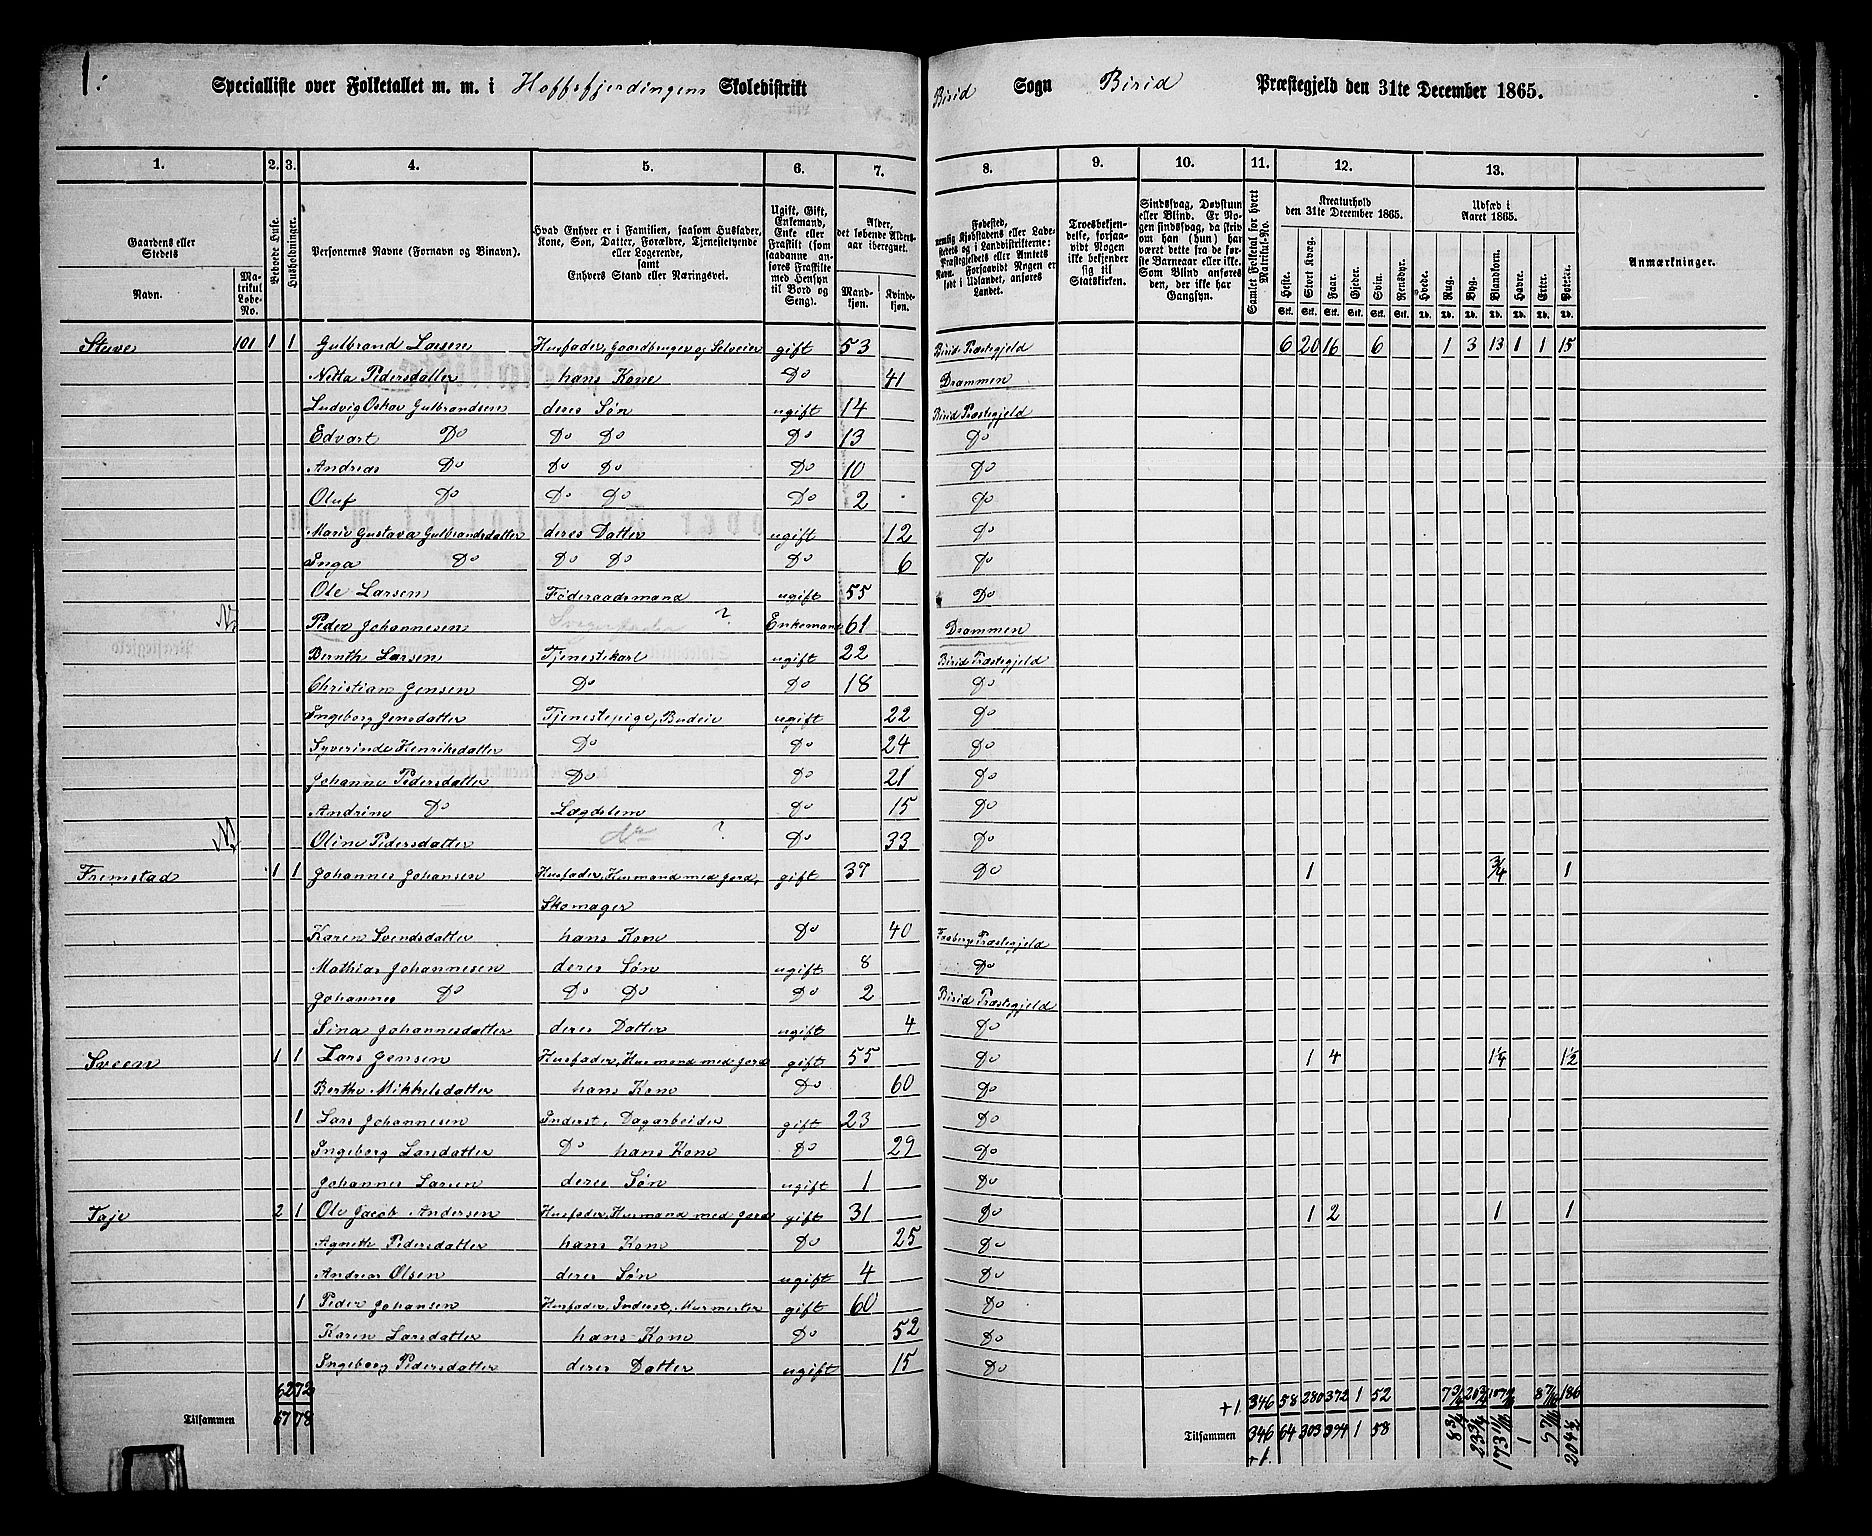 1:
Specialliste over Folketallet m. m. i Hoffsfjerdingens Skoledistrikt Birid Sogn Birid Præstegjeld den 31te December 1865.
1. 2. 3. 4. 5. 6. 7. 8. 9. 10. 11. 12. 13.
Gaardens eller Stedets Navn.
Matrikul Løbe-No.
Beboede Huse.
Husholdninger.
Personernes Navne (Fornavn og Binavn).
Hvad Enhver er i Familien, saasom Husfader, Kone, Søn, Datter, Forældre, Tjenestetyende eller Logerende, samt Enhvers Stand eller Næringsvei.
Ugift, Gift, Enkemand, Enke eller Fraskilt (som saadanne anføres Fraskilte med Hensyn til Bord og Seng).
Alder, det løbende Aldersaar iberegnet.
Mandkjøn. Kvindekjøn.
Fødested, nemlig Kjøbstadens eller Ladestedets og i Landdistrikterne: Præstegjeldets eller Amtets Navn. Forsaavidt Nogen er født i Udlandet, anføres Landet.
Troesbekjendelse, forsaavidt Nogen ikke bekjender sig til Statskirken.
Sindssvag, Døvstum eller Blind. Er Nogen sindssvag, da skrives om han (hun) har været dette fra de første Barneaar eller ikke. Som Blind anføres den, der ikke har Gangsyn.
Samlet Folketal for hvert Matrikul-No.
Kreaturhold den 31te December 1865.
Heste. Stort Kvæg. Faar. Gjeder. Svin. Rensdyr.
Udsæd i Aaret 1865.
Hvede. Rug. Byg. Blandkorn. Havre. Erter. Poteter.
Stk. Stk. Stk. Stk. Stk. Stk. Td. Td. Td. Td. Td. Td. Td.
Anmærkninger.
Stuve 101 1 1 Gulbrand Larsen Husfader, Gaardbruger og Selveier gift 53 Birid Præstegjeld 6 20 16 6 1 3 13 1 1 15
Netta Pedersdatter hans Kone Do 41 Drammen
Ludvig Oskar Gulbrandsen deres Søn ugift 14 Birid Præstegjeld
Edvart Do Do Do Do 13 Do
Andreas Do Do Do Do 10 Do
Oluf Do Do Do Do 2 Do
Marie Gustava Gulbrandsdatter deres Datter ugift 12 Do
Inga Do Do Do Do 6 Do
Ole Larsen Føderaadsmand ugift 55 Do
Peder Johannesen Svigerfader ? Enkemand 61 Drammen
Bernth Larsen Tjenestekarl ugift 22 Birid Præstegjeld
Christian Jensen Do Do 18 Do
Ingeborg Jensdatter Tjenestepige, Budeie ugift 22 Do
Syverinde Henriksdatter Do Do 24 Do
Johanne Pedersdatter Do Do 21 Do
Andrine Do Lægdslem Do 15 Do
Oline Pedersdatter Do ? Do 33 Do
Fremstad 1 1 Johannes Johansen Husfader, Husmand med Jord, gift 37 Do 1 3/4 1
Skomager
Karen Svendsdatter hans Kone Do 40 Faaberg Præstegjeld
Mathias Johannesen deres Søn ugift 8 Do
Johannes Do Do Do Do 2 Birid Præstegjeld
Sina Johannesdatter deres Datter ugift 4 Do
Sveen 1 1 Lars Jensen Husfader, Husmand med Jord gift 55 Do 1 4 1 1/4 1 1/2
Berthe Mikkelsdatter hans Kone Do 60 Do
1 Lars Johannesen Inderst, Dagarbeider gift 23 Do
Ingeborg Larsdatter Do hans Kone Do 29 Do
Johannes Larsen deres Søn ugift 1 Do
Taje 2 1 Ole Jacob Andersen Husfader, Husmand med Jord gift 31 Do 1 2 1 1
Agnethe Pedersdatter hans Kone Do 25 Do
Andreas Olsen deres Søn ugift 4 Do
1 Peder Johansen Husfader, Inderst, Murmester gift 60 Do
Karen Larsdatter hans Kone Do 52 Do
Ingeborg Pedersdatter deres Datter ugift 15 Do
62 72 +1. 346 58 280 372 1 52 186
Tilsammen 67 78 Tilsammen 346 64 303 394 1 58 8 3/4 23 3/4 1 204 1/2
+1.